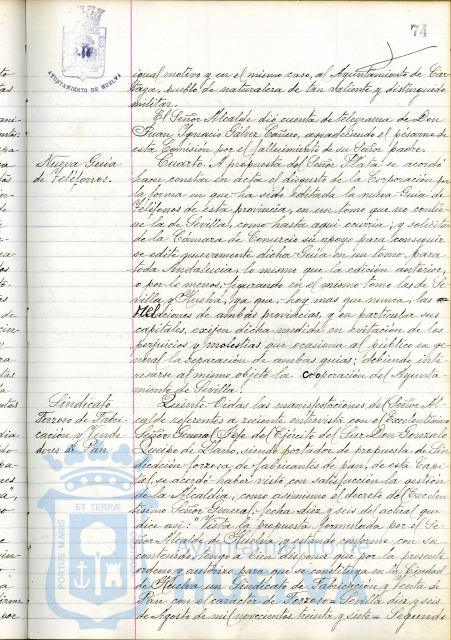 74
AYUNTAMIENTO DE HUELVA
igual motivo y en el mismo caso, al Ayuntamiento de Car-
taya, pueblo de naturaleza de tan valiente y distinguido
militar.
El Señor Alcalde dió cuenta de telegrama de Don
Juan Ignacio Gálvez Cañero, agradeciendo el pésame de
esta Comisión por el fallecimiento de su Señor padre.
Nueva Guia
de Teléfonos.
Cuarto. A propuesta del Señor Plata se acordó
hacer constar en acta el disgusto de la Corporación por
la forma en que ha sido editada la nueva Guia de
Teléfonos de esta provincia, en un tomo que no contie-
ne la de Sevilla, como hasta aqui ocurria; y solicitar
de la Cámara de Comercio su apoyo para conseguir
se edite nuevamente dicha Guia en un tomo para
toda Andalucia, lo mismo que la edición anterior,
o por lo menos, figurando en el mismo tomo las de Se-
villa y Huelva, ya que, hoy mas que nunca, las =
relaciones de ambas provincias, y en particular sus
capitales, exijen dicha medida en evitación de los
perjuicios y molestias que ocasiona al público en ge-
neral la separación de ambas guias; debiendo inte-
resarse al mismo objeto la cooperación del Ayunta-
miento de Sevilla.
Sindicato
Forzoso de Fabri-
cación y Vende
dores de Pan
Quinto. Oidas las manifestaciones del Señor Al-
calde referentes a reciente entrevista con el Excelentísimo
Señor General Jefe del Ejército del Sur Don Gonzalo
Queipo de Llano, siendo portador de propuesta de Sin-
dicación forzosa de fabricantes de pan, de esta Capi-
tal, se acordó haber visto con satisfacción la gestión
de la Alcaldia, como asimismo el decreto del Excelen-
tísimo Señor General, fecha diez y seis del actual que
dice asi: "Vista la propuesta formulada por el Se-
ñor Alcalde de Huelva y estando conforme con su
contenido, vengo a bien disponer que por la presente
ordeno y autorizo para que se constituya en la Ciudad
de Huelva un Sindicato de Fabricación y Venta de
Pan con el carácter de Forzoso = Sevilla diez y seis
de Agosto de mil novecientos treinta y siete = Segundo
PORTUS MARIS ET TERRAE